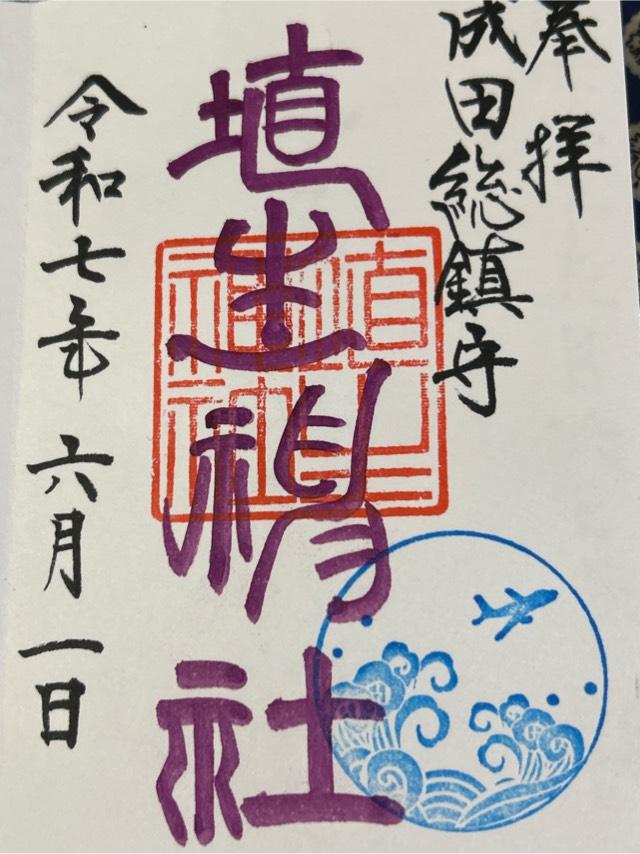 奉拝
成田総鎮守
埴生神社
令和七年 六月一日